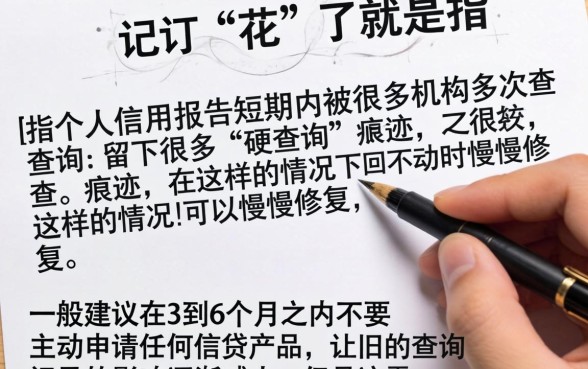 记订“花”了就是指
[指个人信用报告短期内被很多机构多次查
查询: 留下很多“硬查询”痕迹，之很狡，
查。痕迹，在这样的情况下回不动时慢慢修
这样的情况!可以慢慢修复，
复。
一般建议在3到6个月之内不要
主动申请任何信贷产品，让旧的查询